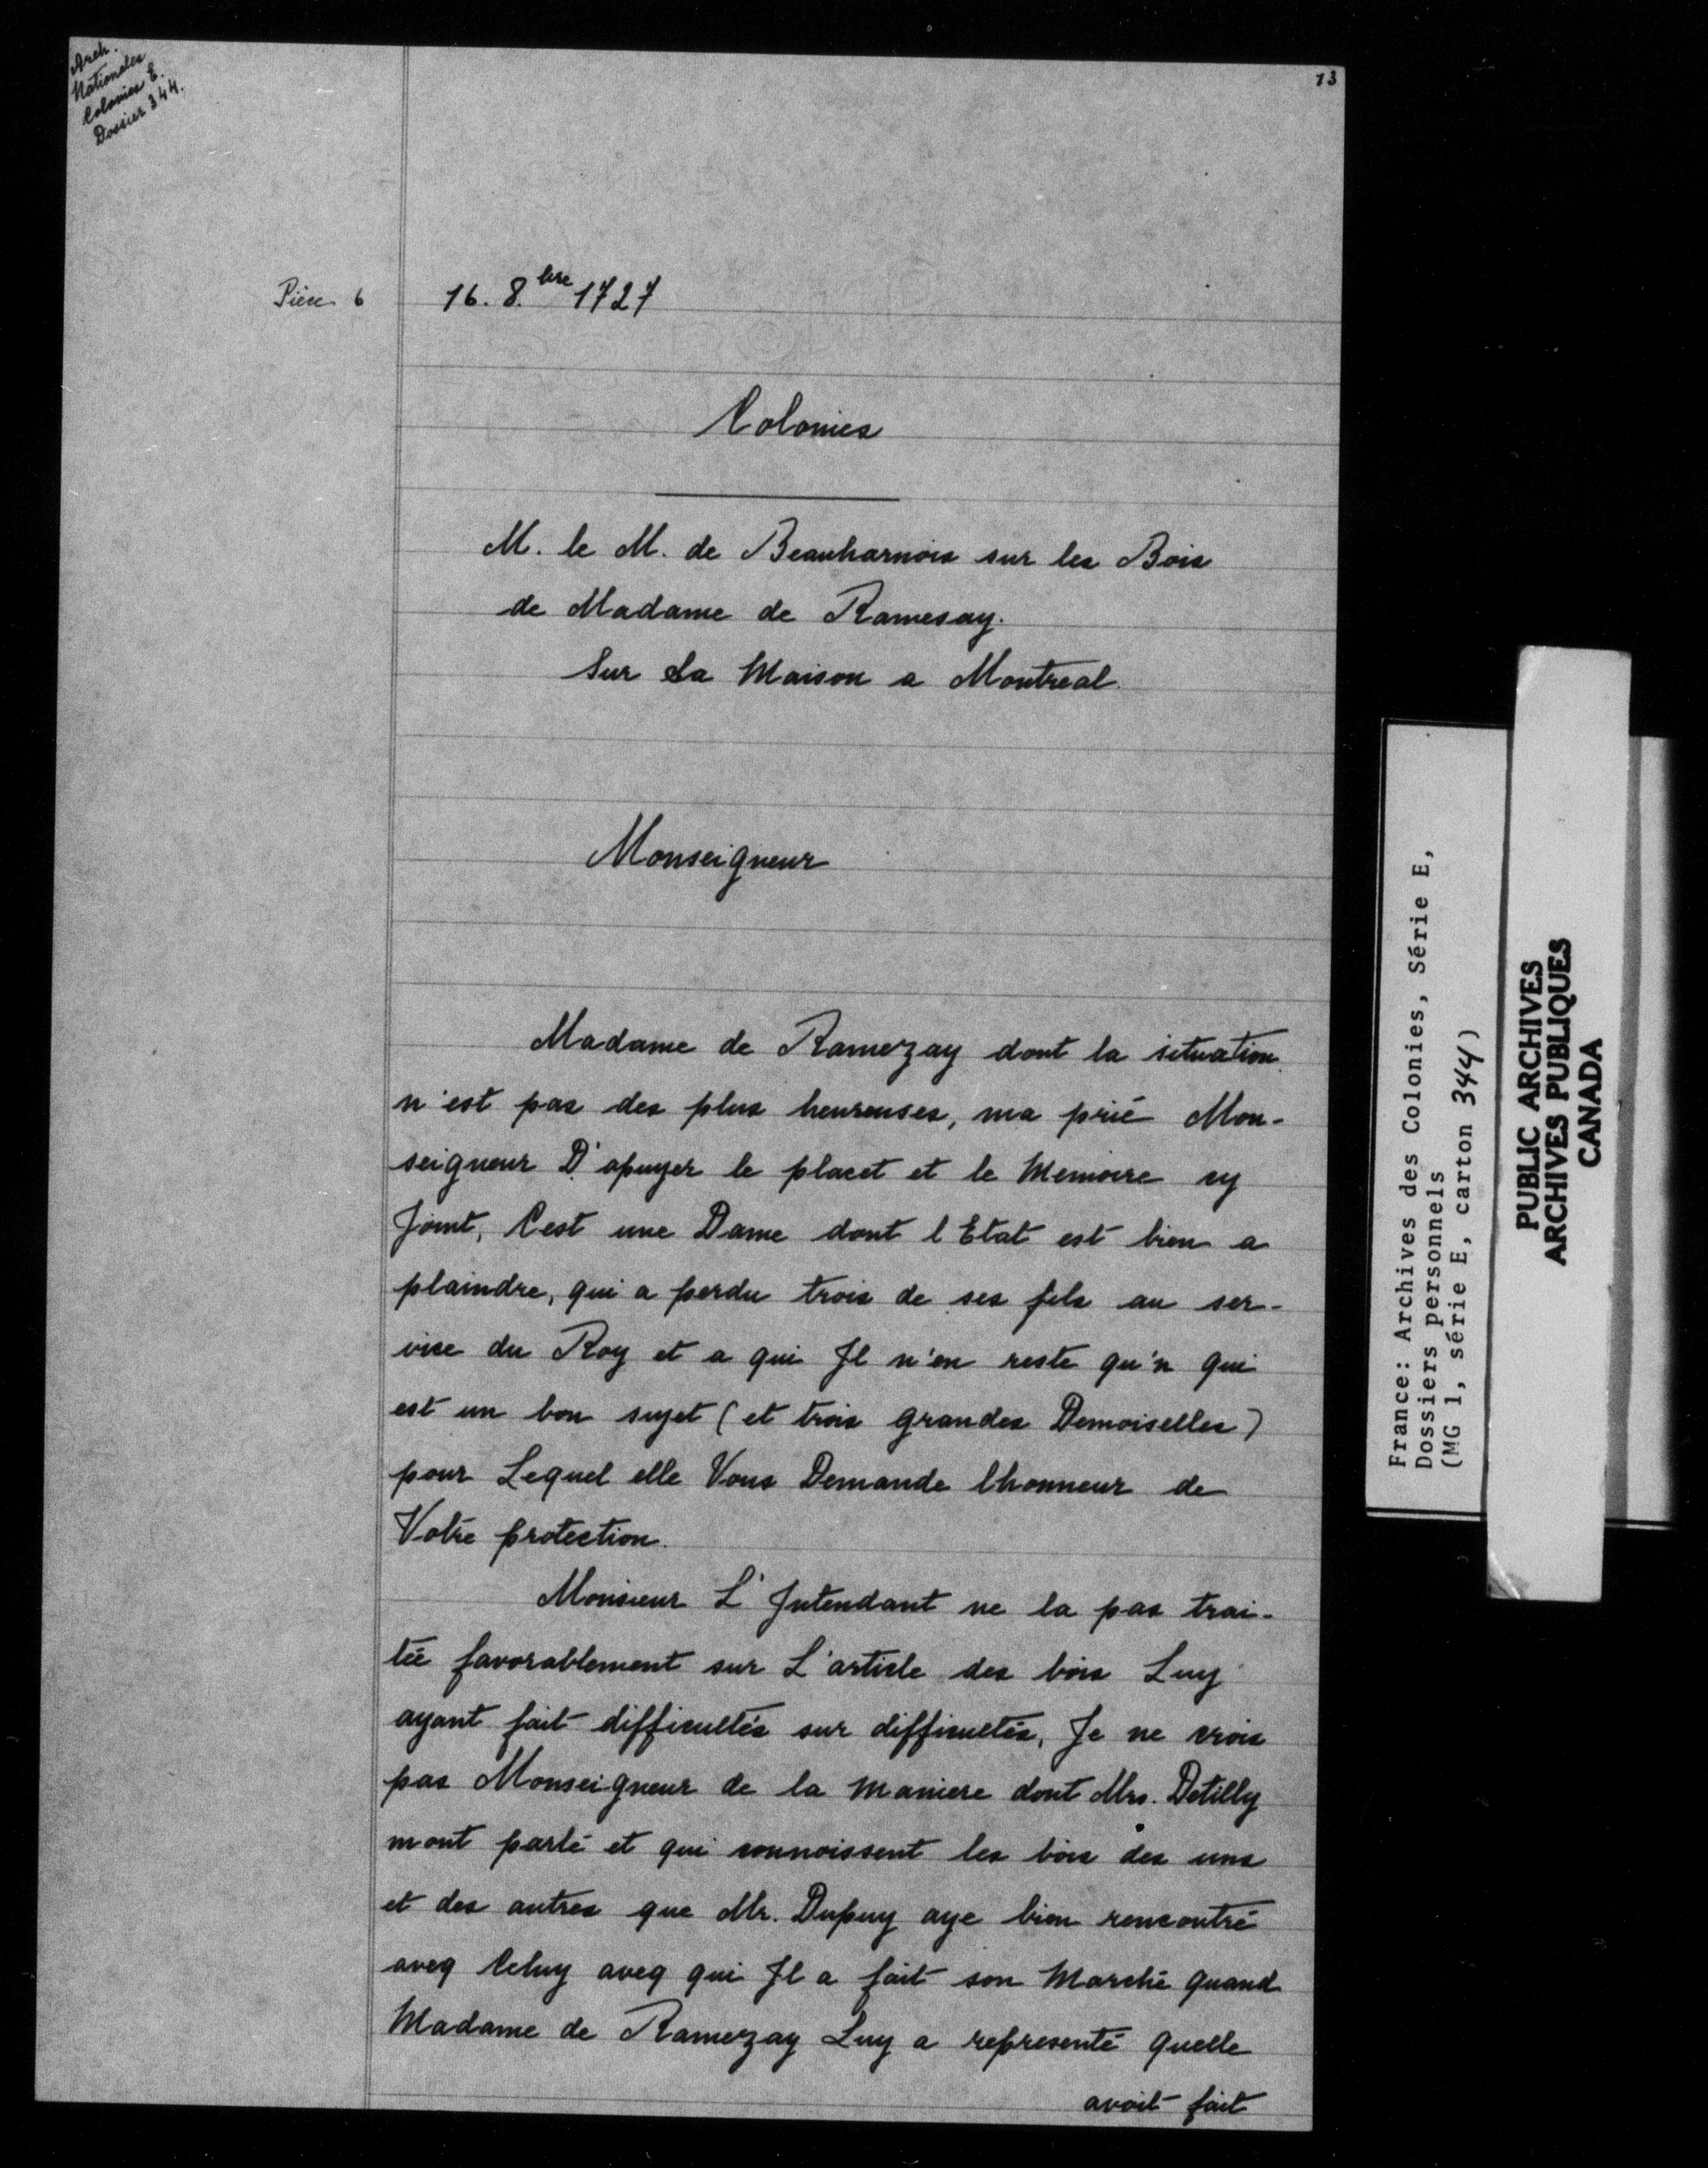 Arch.
Nationales
Colonies E.
Dossier 344.
13
Pièce 6
16. 8.bre 1727
Colonies
M. le M. de Beauharnois sur les Bois
de Madame de Ramesay.
Sur La Maison a Montreal.
Monseigneur
Madame de Ramezay dont la situation
n'est pas des plus heureuses, ma prié Mon-
seigneur D'apuyer le placet et le Memoire cy
Joint, C'est une Dame dont l Etat est bien a
plaindre, qui a perdu trois de ses fils au ser-
vice du Roy et a qui Il n'en reste qu'n qui
est un bon sujet (et trois grandes Demoiselles)
pour Lequel elle Vous Demande lhonneur de
Votre protection.
Monsieur L'Intendant ne la pas trai-
tée favorablement sur L'article des bois Luy
ayant fait difficultés sur difficultés, Je ne crois
pas Monseigneur de la maniere dont Mrs. Detilly
mont parlé et qui connoissent les bois des uns
et des autres que Mr. Dupuy aye bien rencontré
aveq Celuy aveq qui Il a fait son Marché quand
Madame de Ramezay Luy a representé quelle
avoit fait
France: Archives des Colonies, Série E,
Dossiers personnels
(MG 1, série E, carton 344)
PUBLIC ARCHIVES
ARCHIVES PUBLIQUES
CANADA